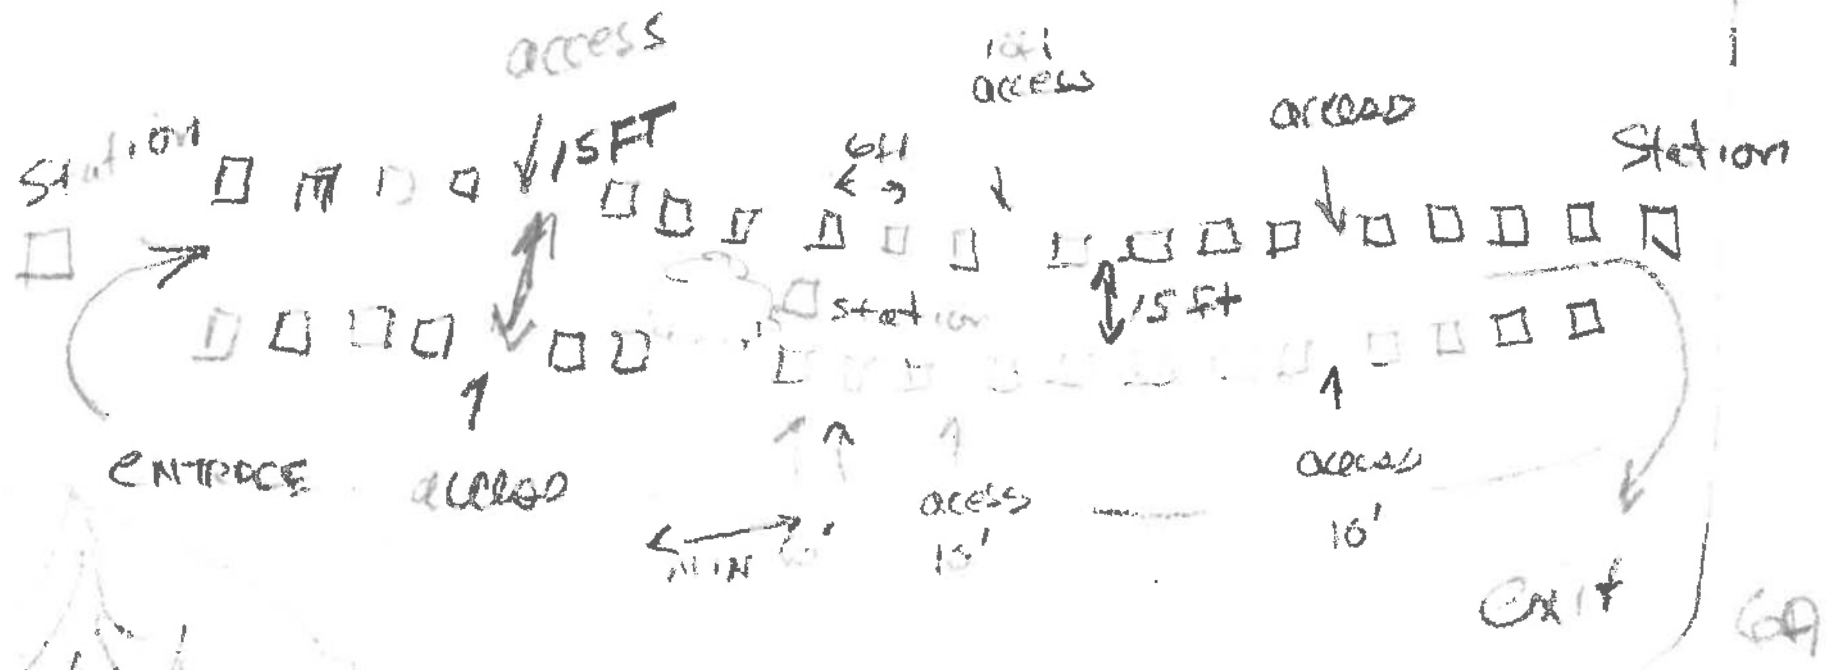 access
access
access
Station
15 FT
6ft
Station
station
15 ft
ENTRACE
access
access
acess
MIN 6'
16'
exit